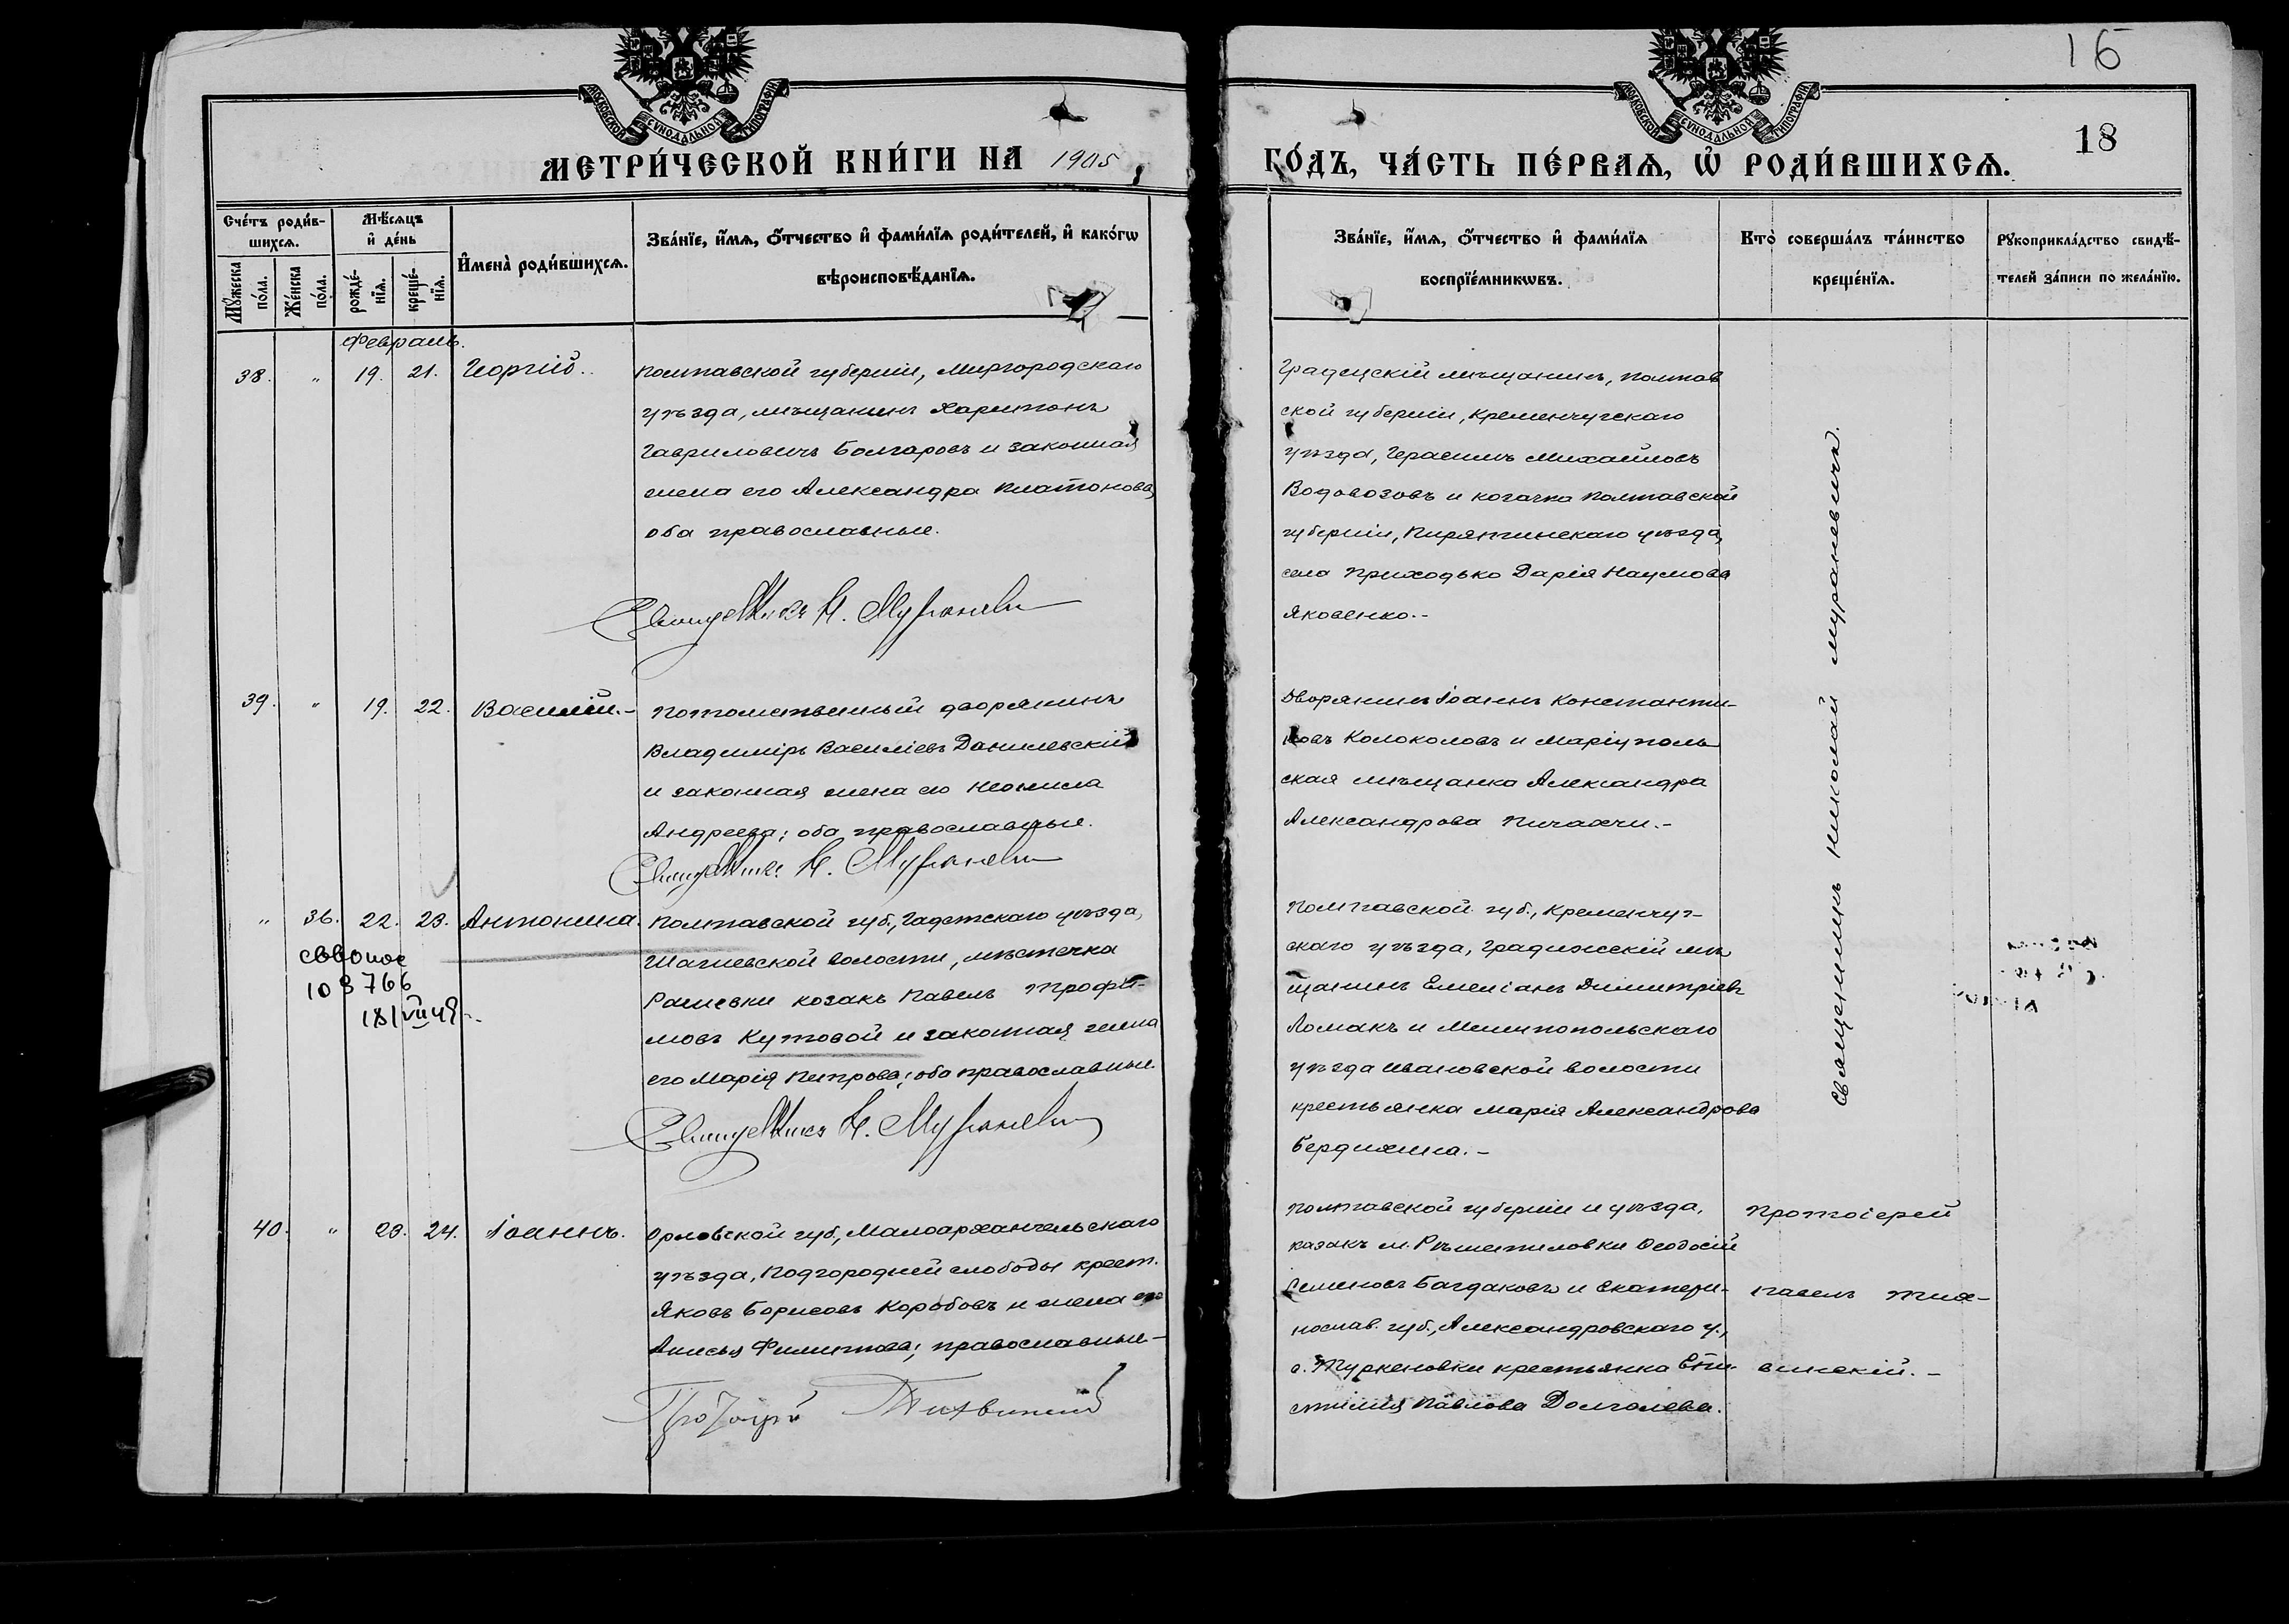 16
18
МОСКОВСКОЙ СѴНОДАЛЬНОЙ ТИПОГРАФІИ
МОСКОВСКОЙ СѴНОДАЛЬНОЙ ТИПОГРАФІИ
МЕТРИ́ЧЕСКОЙ КНИ́ГИ НА 1905
ГО́ДЪ, ЧА́СТЬ ПЕ́РВАѦ, Ѡ҆ РОДИ́ВШИХСѦ.
Сче́тъ роди́в-
шихсѧ.
Мꙋ́жеска
по́ла.
Же́нска
по́ла.
Мѣ́сѧцъ
и҆ де́нь
рожде́-
нїѧ.
креще́-
нїѧ.
И҆мена̀ роди́вшихсѧ.
Зва́нїе, и҆́мѧ, ѻ҆́тчество и҆ фами́лїѧ роди́телей, и҆ како́гѡ
вѣроисповѣ́данїѧ.
Зва́нїе, и҆́мѧ, ѻ҆́тчество и҆ фами́лїѧ
воспрїе́мникѡвъ.
Кто̀ соверша́лъ та́инство
креще́нїѧ.
Рꙋкоприкла́дство свидѣ́-
телей за́писи по жела́нїю.
Февраль.
38. " 19. 21. Георгій.
Полтавской губерніи, Миргородскаго
уѣзда, мѣщанинъ Харитонъ
Гавриловичъ Болгаровъ и законная
жена его Александра Платонова,
оба православные.
Священникъ Н. Мураневи
Градецскій мѣщанинъ, Полтав
ской губерніи, Кременчугскаго
уѣзда, Герасимъ Михайловъ
Водовозовъ и козачка Полтавской
губерніи, Пирятинскаго уѣзда,
села Приходько Дарія Наумова
Яковенко.-
39. " 19. 22. Василій.-
Потомственный дворянинъ
Владиміръ Василіевъ Данилевскій
и законная жена его Неонила
Андреева; оба православные.
Священникъ Н. Мураневи
Дворянинъ Іоаннъ Константи-
новъ Колоколовъ и Маріуполь
ская мѣщанка Александра
Александрова Пичахчи.-
Священникъ Николай Мураневичъ.
" 36. 22. 23. Антонина.
108766
Полтавской губ., Гадетскаго уѣзда,
волости, мѣстечка
Рашевки козакъ Павелъ Трофи-
мовъ Кутовой и законная жена
его Марія Петрова; оба православные.
Священникъ Н. Мураневи
Полтавской губ., Кременчуг-
скаго уѣзда, Градижскій мѣ
щанинъ Емеліанъ Димитріевъ
Ломакъ и Мелитопольскаго
уѣзда Ивановской волости
крестьянка Марія Александрова
Бердихина.-
40. " 23. 24. Іоаннъ.
Орловской губ., Малоархангельскаго
уѣзда, Подгородней слободы крест.
Яковъ Борисовъ Коробовъ и жена его
Анисья Филиппова; православные-
Протоіерей Тихвинскій
Полтавской губерніи и уѣзда,
казакъ м. Рѣшетиловки Ѳеодосій
Семеновъ Багдаковъ и Екатери-
нослав. губ., Александровскаго у.,
с. Туркеновки крестьянка Еѵѳи-
Павлова Долголева.
Протоіерей
Павелъ Тих-
винскій.-